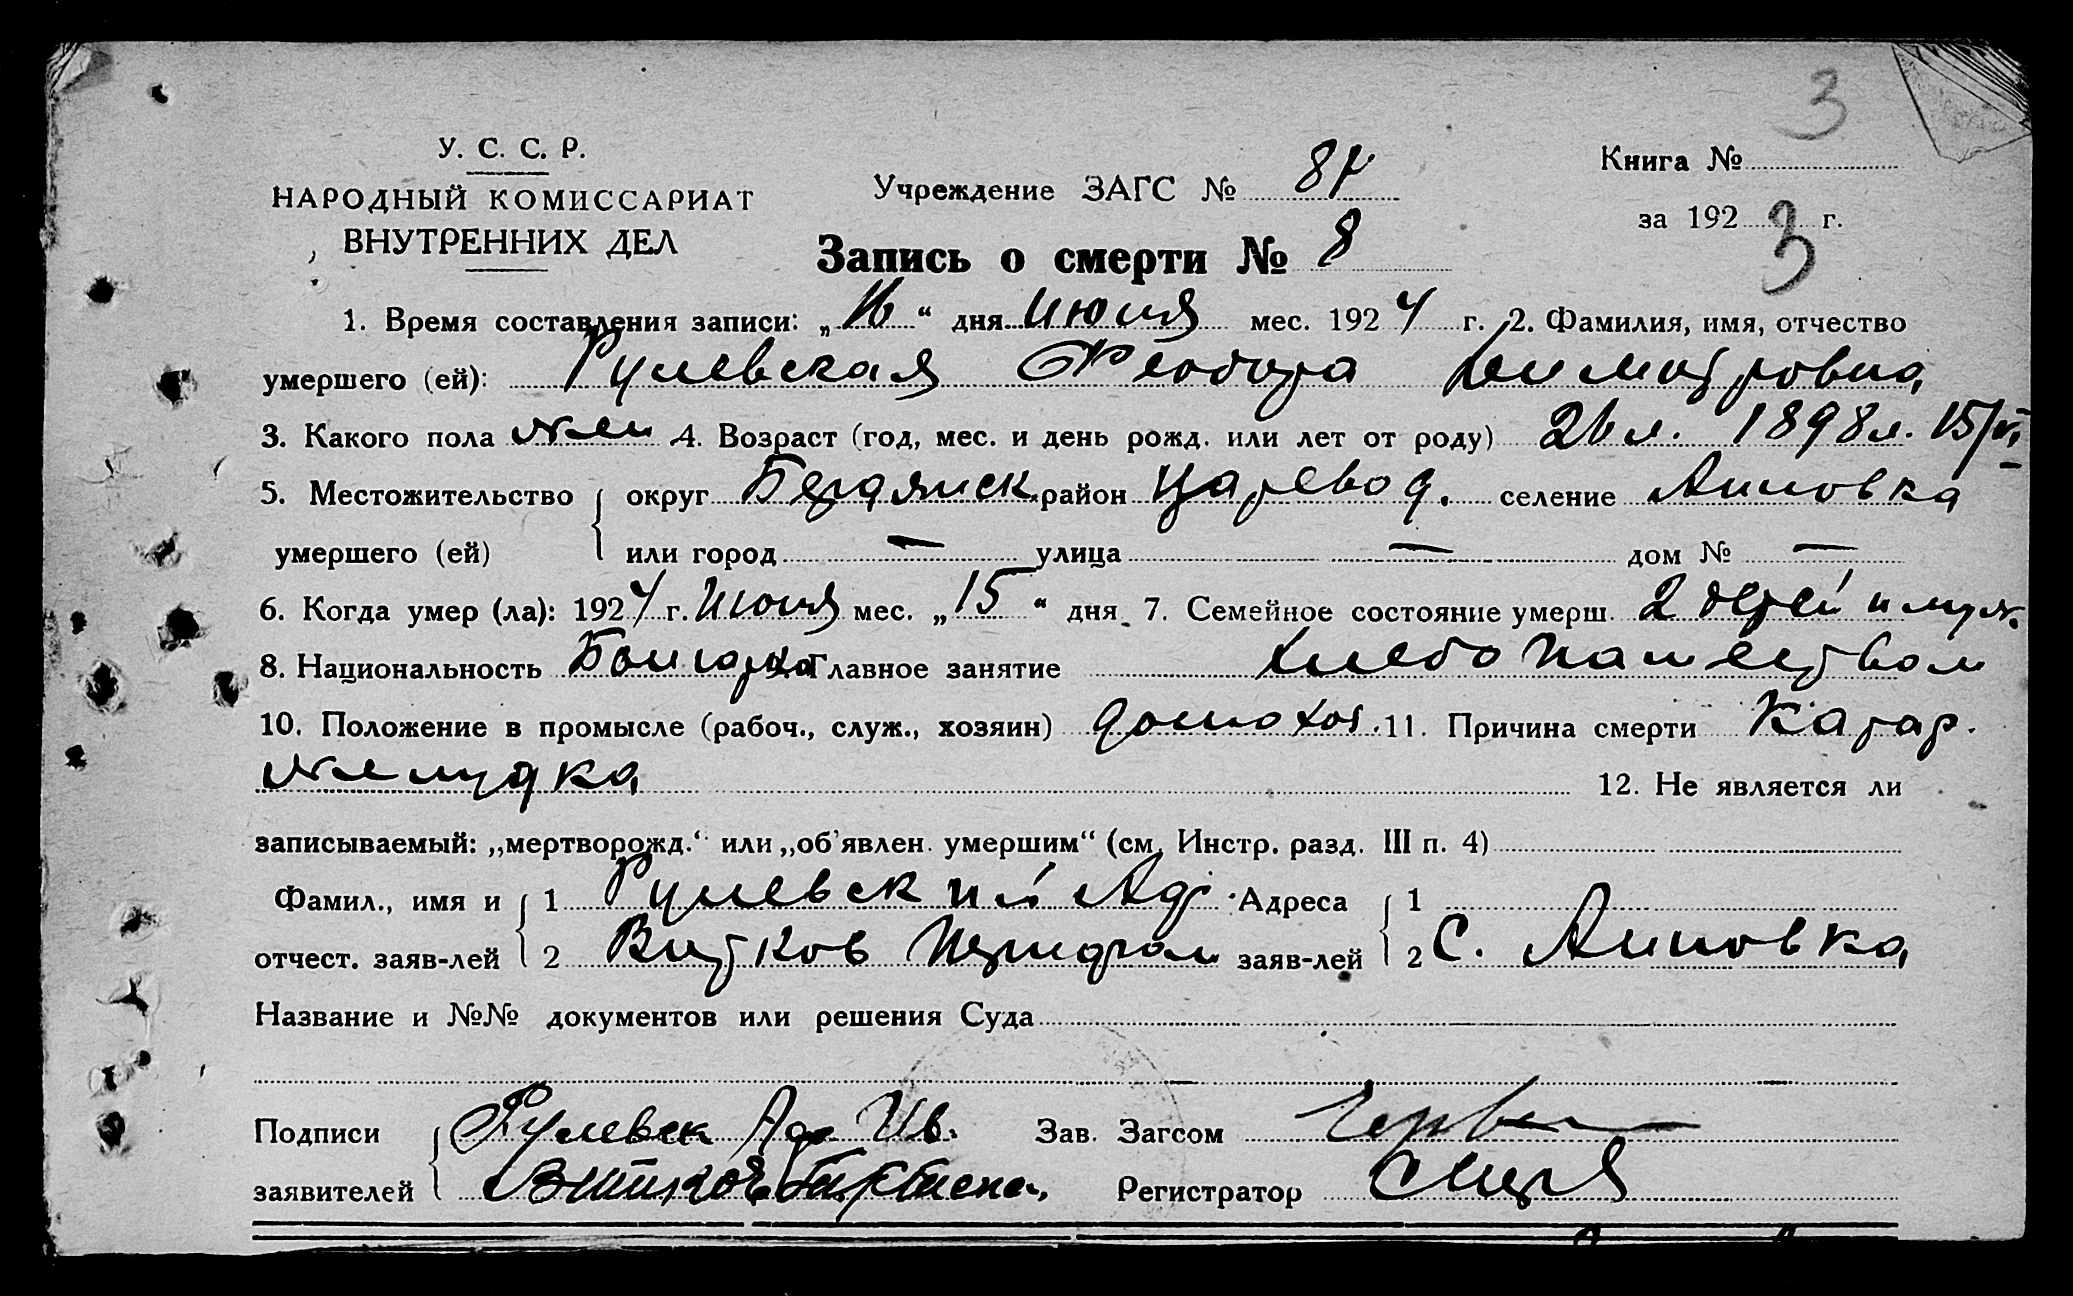 3
У. С. С. Р.
НАРОДНЫЙ КОМИССАРИАТ
ВНУТРЕННИХ ДЕЛ
Учреждение ЗАГС № 84
Книга №
за 192 3 г.
Запись о смерти № 8
1. Время составления записи: „16“ дня июля мес. 1924 г. 2. Фамилия, имя, отчество
умершего (ей): Рулевская Феодора Димитровна
3. Какого пола жен 4. Возраст (год, мес. и день рожд. или лет от роду) 26 л. 1898 15/VI
5. Местожительство округ Бердянск. район Царевод. селение Анновка
умершего (ей) или город — улица — дом № —
6. Когда умер (ла): 1924 г. Июля мес. „15“ дня 7. Семейное состояние умерш. 2 детей и муж.
8. Национальность Болгарка Главное занятие хлебопашеством
10. Положение в промысле (рабоч., служ., хозяин) домохоз. 11. Причина смерти Катар.
желудка 12. Не является ли
записываемый: „мертворожд.“ или „об'явлен. умершим“ (см. Инстр. разд. III п. 4)
Фамил., имя и 1 Рулевский Адр. Адреса 1
отчест. заяв-лей 2 Витков заяв-лей 2 С. Анновка
Название и №№ документов или решения Суда
Подписи Рулевск Адр Ив. Зав. Загсом
заявителей Регистратор